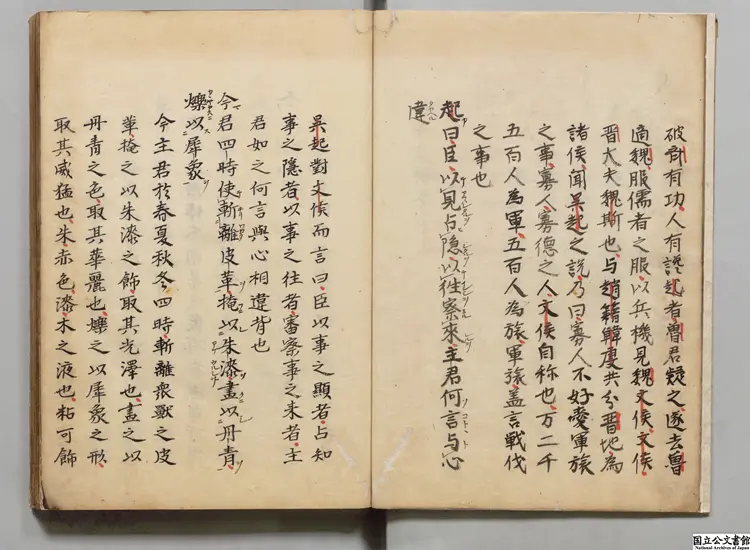 破齊有功人有譖起者魯君疑之遂去魯
適魏服儒者之服以兵機見魏文侯文侯
晋大夫魏斯也与趙籍韓虔共分晋地為
諸侯聞吴起之説乃曰寡人不好愛軍旅
之事寡人寡德之人文侯自称也万二千
五百人為軍五百人為旅軍旅盖言戰伐
之事也
起曰臣以見占隐以徃察來主君何言与心
違
吴起對文侯而言曰臣以事之顯者占知
事之隐者以事之往者審察事之未者主
君如之何言與心相違背也
今君四時使斬離皮革掩以朱漆畫以丹青
爍以犀象
今主君於春夏秋冬四時斬離衆獸之皮
革掩之以朱漆之飾取其光澤也畫之以
丹青之色取其華麗也爍之以犀象之形
取其威猛也朱赤色漆木之液也粘可飾
国立公文書館
National Archives of Japan